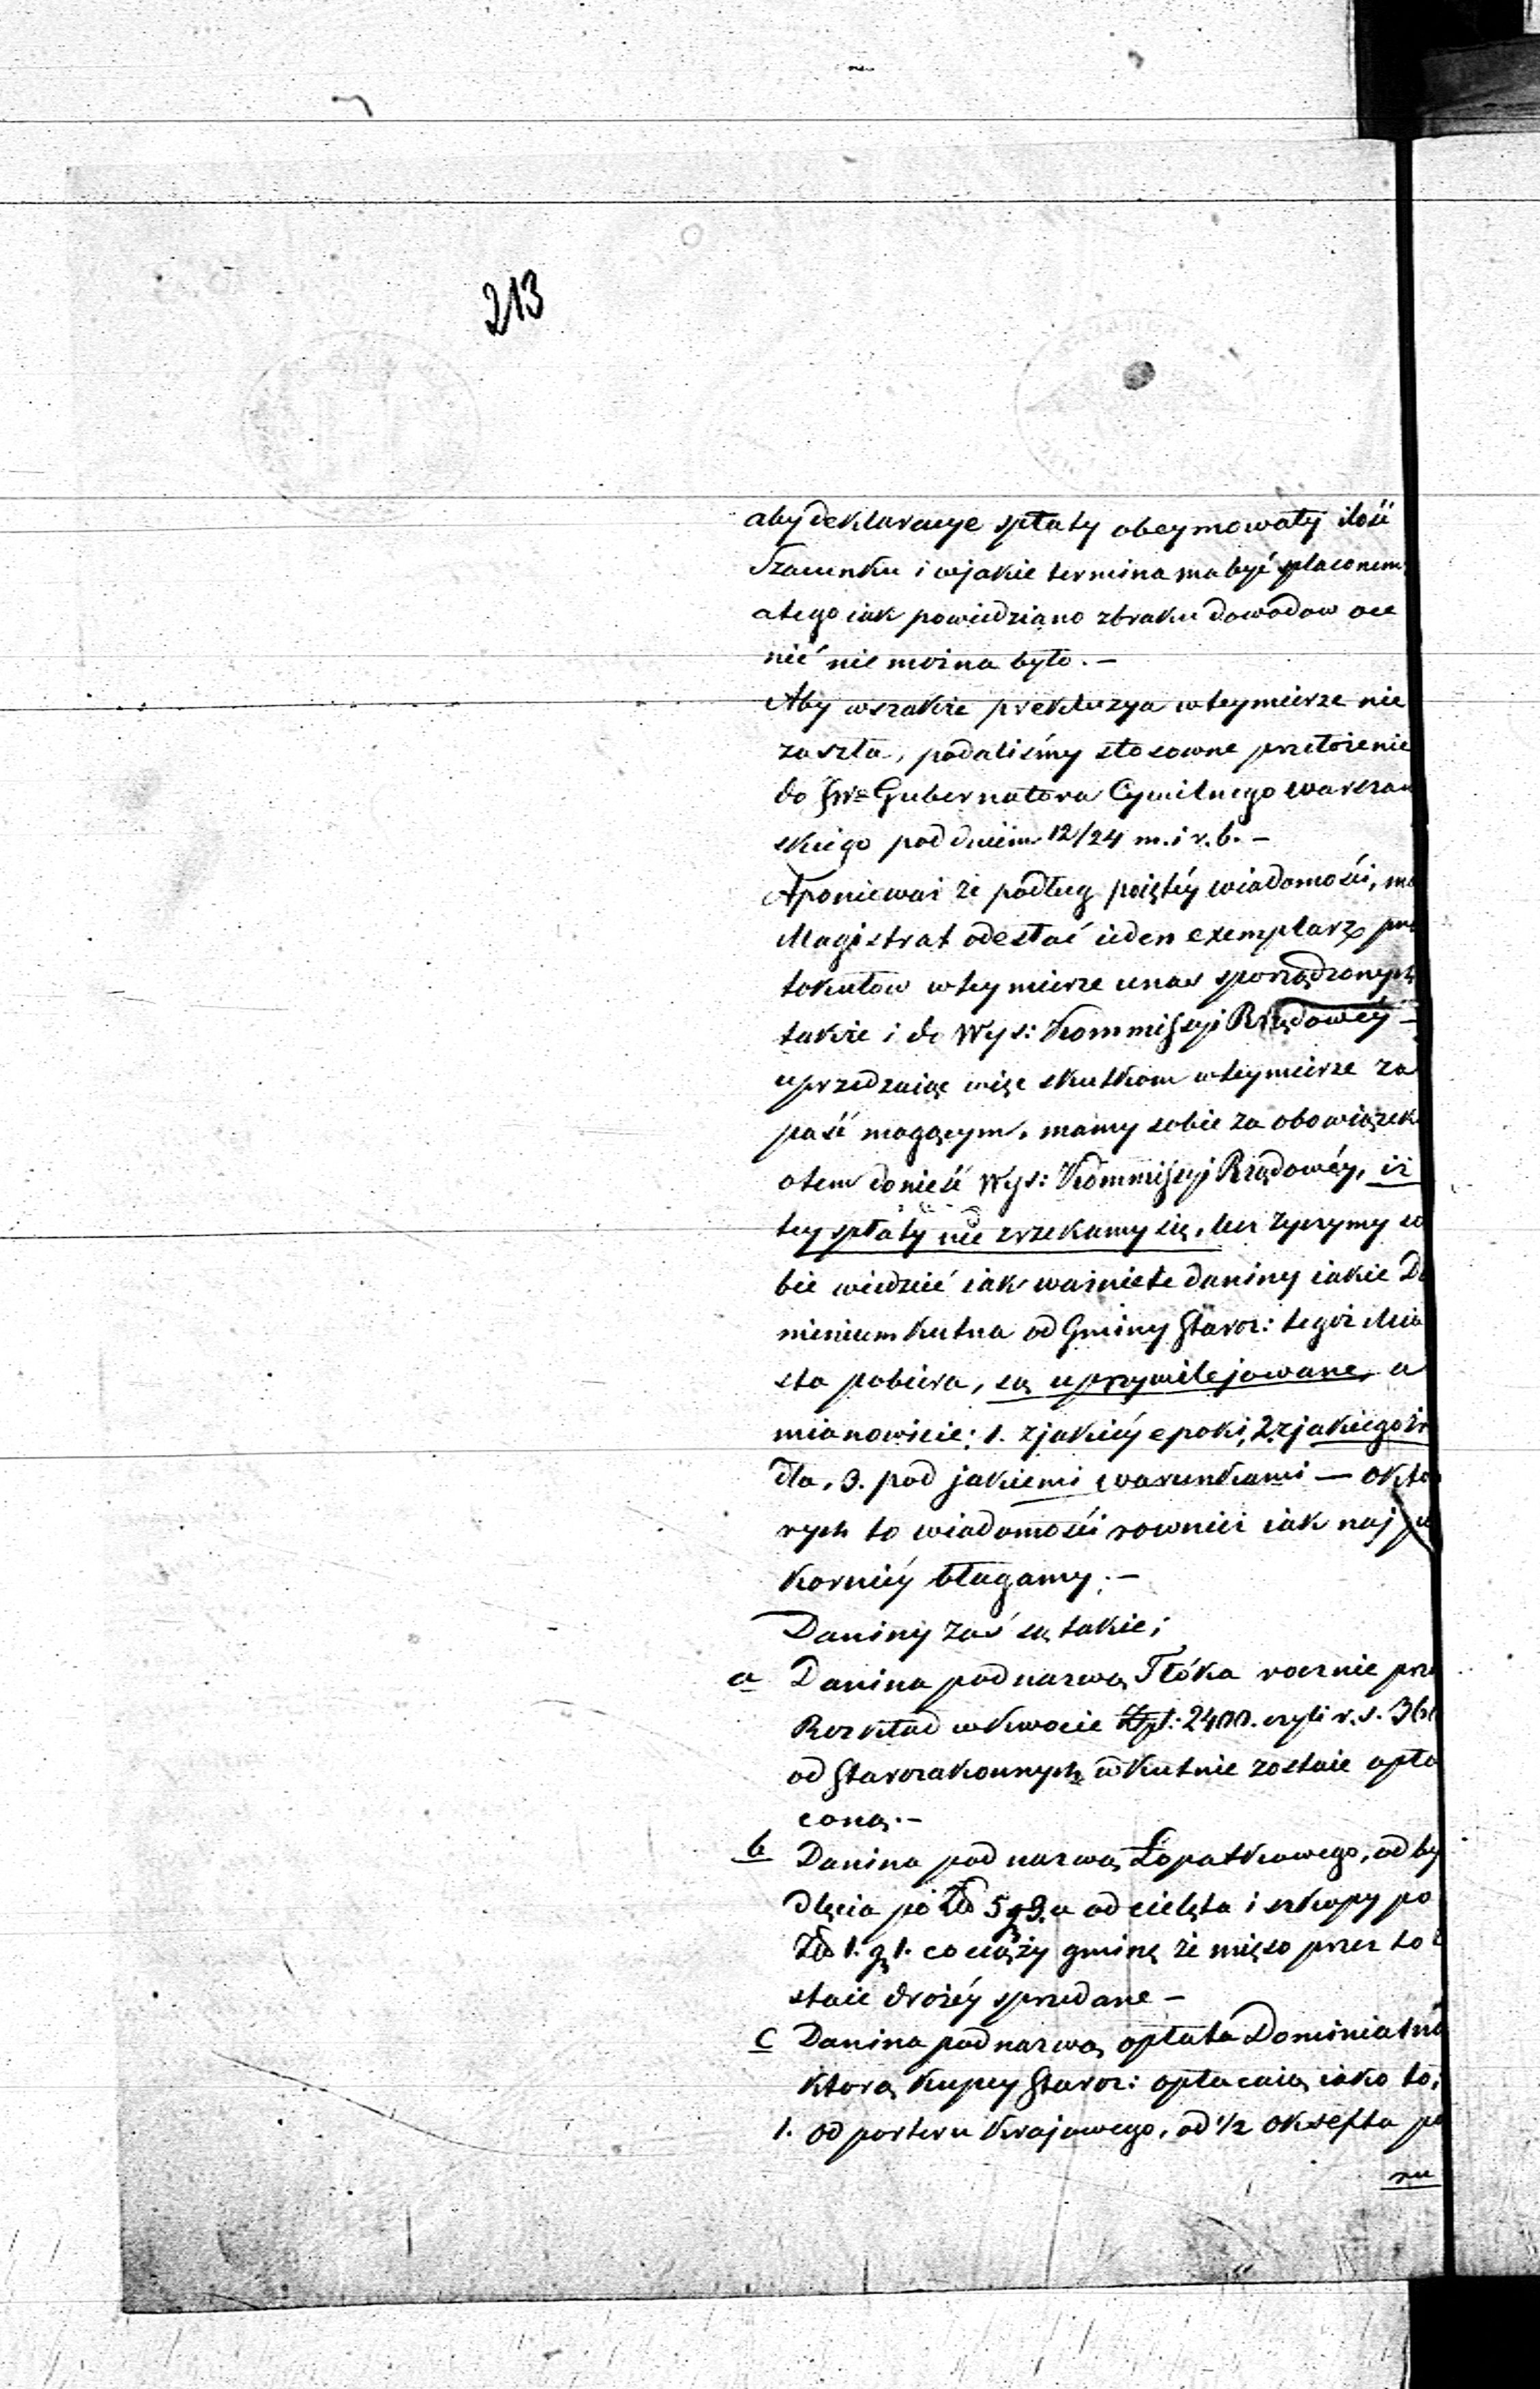 213
aby deklaracye spłaty obeymowały ilość
Szacunku i wjakie termina ma być płaconem
atego iak powiedziano zbraku dowodow oce
nić nie można było. –
Aby wszakże prekluzya wteymierze nie
zaszła, podaliśmy stosowne przełożenie
do Gubernatora Cywilnego warszaw
skiego pod dniem 12/24 m. i r. b. –
Aponieważ że podług poiętéy wiadomości, ma
Magistrat odesłać ieden exemplarz pro
tokułow wteymierze unas sporządzonych
także i do Wys: Kommissyi Rządowéy –
uprzedzaiąc więc skutkom wteymierze za
paść mogącym, mamy sobie za obowiązek
otem donieść Wys: Kommissyi Rządowéy, iż
tey spłaty nie zrzekamy się, lecz życzymy so
bie wiedzieć iak ważniete daniny iakie Do
minium Kutna od Gminy Staroz: tegoż Mia
sta pobiera, są uprzywilejowane, a
mianowicie: 1. zjakiéy epoki, 2. zjakiego źró
dła, 3. pod jakiemi warunkami — okto
rych to wiadomości rownież iak naj po
korniéy błagamy. –
Daniny zaś są takie;
a Danina pod nazwą Tłóka rocznie prze
Rozkład wkwocie Złp: 2400. czyli r. s. 360
od Starozakonnych w Kutnie zostaie opła
coną. –
b Danina pod nazwą Łopatkowego, od by
dlęcia po Zł 5 g 9. a od cielęta i szkopy po
Zł 1. g 1. co ciąży gminę że mięso przez to
staie drożéy sprzedane –
c Danina pod nazwą opłata Dominialna
ktorą Kupcy Staroz: opłacaią iako to,
1. od porteru Krajowego, od 1/2 oksefta po